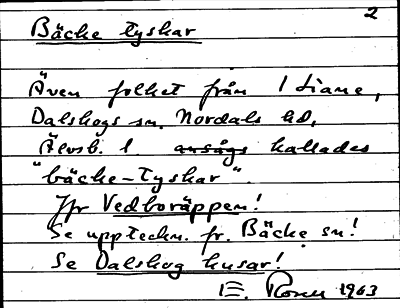 2
Bäcke tyskar
Även folket från Liane,
Dalskogs sn. Nordals hd,
Älvsb. l. ansågs kallades
"bäcke-tyskar".
Jfr Vedboräppen!
Se uppteckn. fr. Bäcke sn!
Se Dalskog husar!
1963